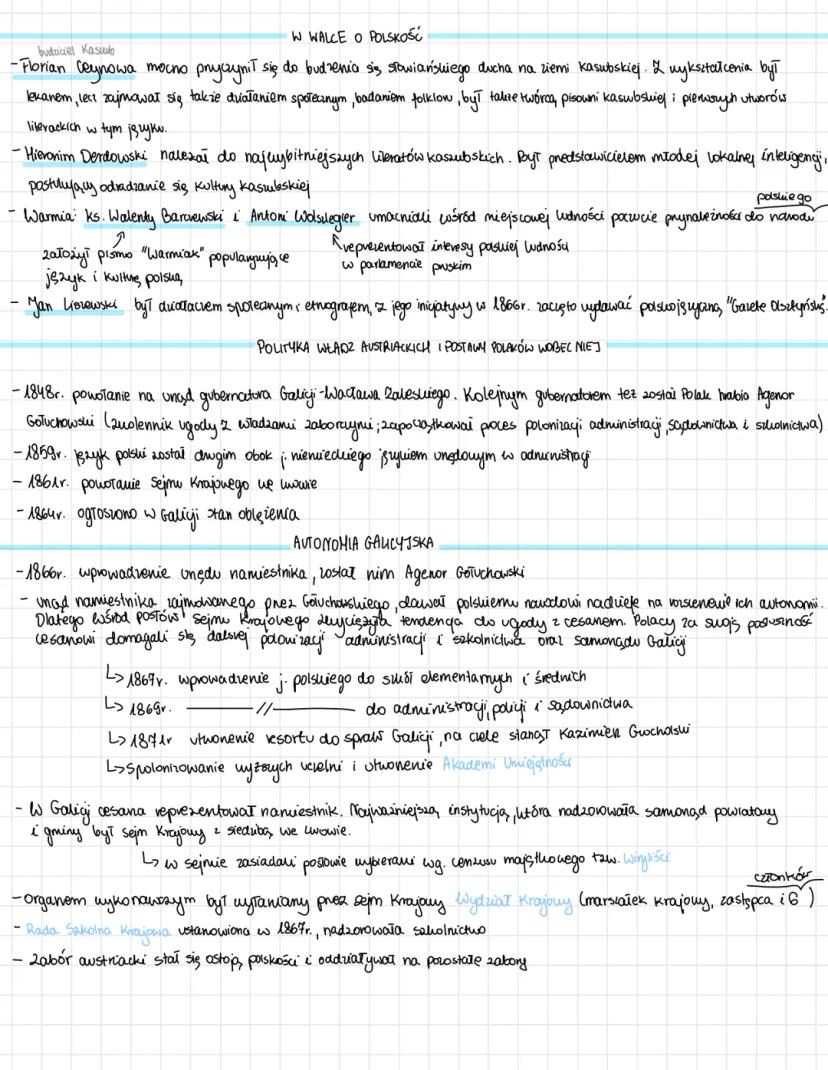 W WALCE O POLSKOŚĆ
budziciel Kaszub
- Florian Ceynowa mocno przyczynił się do budzenia się słowiańskiego ducha na ziemi kaszubskiej. Z wykształcenia był
lekarzem, lecz zajmował się także działaniem społecznym, badaniem folkloru, był także twórcą pisowni kaszubskiej i pierwszych utworów
literackich w tym języku.
- Hieronim Derdowski należał do najwybitniejszych literatów kaszubskich. Był przedstawicielem młodej lokalnej inteligencji,
postulującej odradzanie się kultury kaszubskiej
polskiego
- Warmia: ks. Walenty Barczewski i Antoni Wolszlegier umacniali wśród miejscowej ludności poczucie przynależności do narodu
założył pismo "Warmiak" popularyzujące
język i kulturę polską
reprezentował interesy polskiej ludności
w parlamencie pruskim
- Jan Liszewski był działaczem społecznym i etnografem, z jego inicjatywy w 1866r. zaczęto wydawać polskojęzyczną "Gazetę Olsztyńską".
POLITYKA WŁADZ AUSTRIACKICH I POSTAWY POLAKÓW WOBEC NIEJ
- 1848r. powołanie na urząd gubernatora Galicji - Wacława Zaleskiego. Kolejnym gubernatorem też został Polak hrabia Agenor
Gołuchowski (zwolennik ugody z władzami zaborczymi; zapoczątkował proces polonizacji administracji, sądownictwa i szkolnictwa)
- 1859r. język polski został drugim obok j. niemieckiego językiem urzędowym w administracji
- 1861r. powołanie Sejmu Krajowego we Lwowie
- 1864r. ogłoszono w Galicji stan oblężenia
AUTONOMIA GALICYJSKA
- 1866r. wprowadzenie urzędu namiestnika, został nim Agenor Gołuchowski
- urząd namiestnika zajmowanego przez Gołuchowskiego, dawał polskiemu narodowi nadzieję na rozszerzenie ich autonomii.
Dlatego wśród posłów Sejmu Krajowego zwyciężyła tendencja do ugody z cesarzem. Polacy za swoją posłuszność
cesarzowi domagali się dalszej polonizacji administracji i szkolnictwa oraz samorządu Galicji
↳ 1867r. wprowadzenie j. polskiego do szkół elementarnych i średnich
↳ 1869r. ——— // ——— do administracji, policji i sądownictwa
↳ 1871r utworzenie resortu do spraw Galicji, na czele stanął Kazimierz Grocholski
↳ Spolonizowanie wyższych uczelni i utworzenie Akademi Umiejętności
- W Galicji cesarza reprezentował namiestnik. Najważniejszą instytucją, która nadzorowała samorząd powiatowy
i gminy był sejm Krajowy z siedzibą we Lwowie.
↳ w sejmie zasiadali posłowie wybierani wg. cenzusu majątkowego tzw. wiryliści
członków
- Organem wykonawczym był wyłaniany przez Sejm Krajowy Wydział Krajowy (marszałek krajowy, zastępca i 6 )
- Rada Szkolna Krajowa ustanowiona w 1867r., nadzorowała szkolnictwo
- Zabór austriacki stał się ostoją polskości i oddziaływał na pozostałe zabory